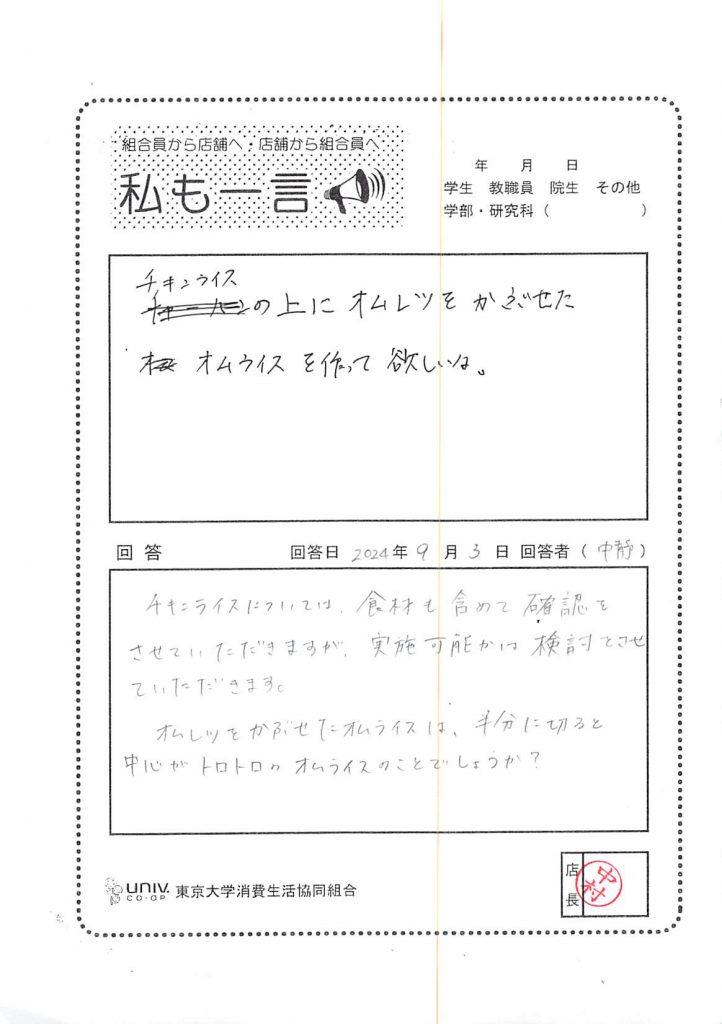 組合員から店舗へ・店舗から組合員へ
私も一言
年 月 日
学生 教職員 院生 その他
学部・研究科（ ）
チキンライス
の上にオムレツをかぶせた
オムライスを作って欲しいな。
回答 回答日 2024年9月3日 回答者（中静）
チキンライスについては、食材も含めて確認を
させていただきますが、実施可能かは検討とさせ
ていただきます。
オムレツをかぶせたオムライスは、半分に切ると
中心がトロトロのオムライスのことでしょうか？
UNIV. CO-OP 東京大学消費生活協同組合
店長 中村